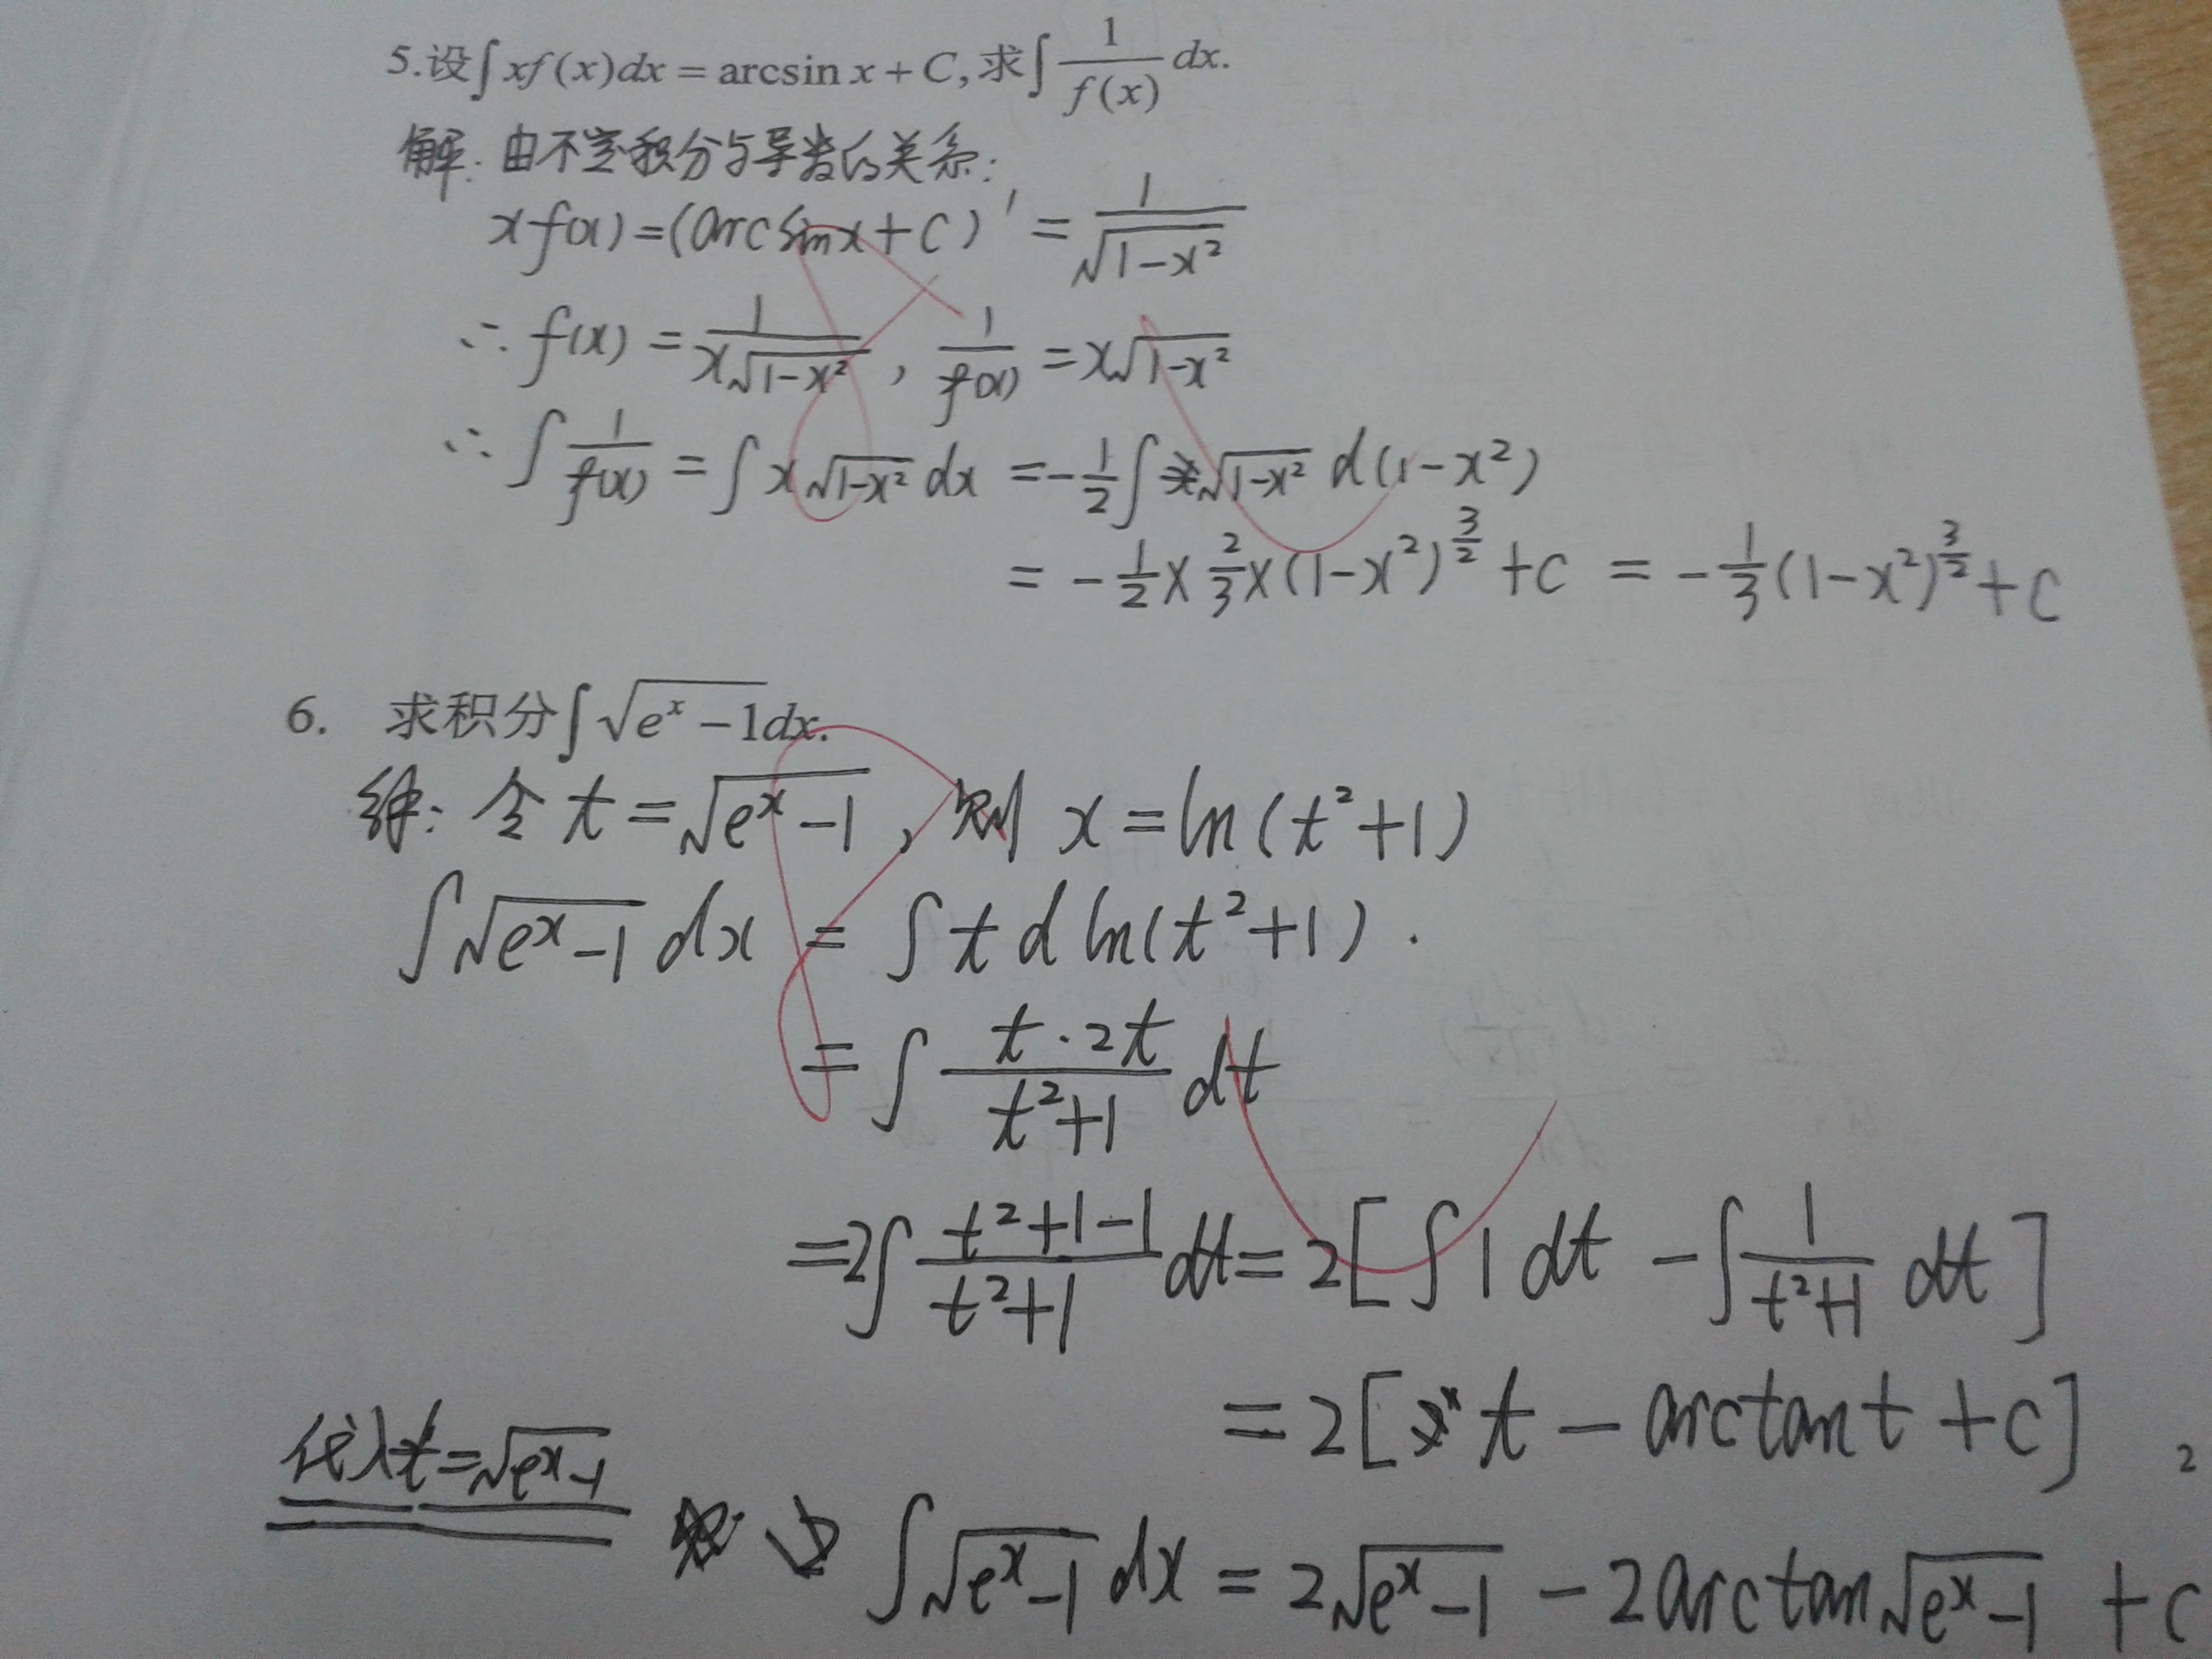 5.设∫xf(x)dx = arcsin x + C, 求∫ 1/f(x) dx.
解: 由不定积分与导数的关系:
xf(x) = (arcsinx + C)' = 1/√(1-x²)
∴ f(x) = 1/(x√(1-x²)) , 1/f(x) = x√(1-x²)
∴ ∫ 1/f(x) = ∫ x√(1-x²) dx = -1/2 ∫ √(1-x²) d(1-x²)
= -1/2 × 2/3 × (1-x²)^(3/2) + C = -1/3 (1-x²)^(3/2) + C
6. 求积分∫√(e^x - 1)dx.
解: 令 t = √(e^x - 1) , 则 x = ln(t²+1)
∫√(e^x - 1) dx = ∫ t d ln(t²+1) .
= ∫ (t·2t)/(t²+1) dt
= 2∫ (t²+1-1)/(t²+1) dt = 2[∫ 1 dt - ∫ 1/(t²+1) dt]
= 2[t - arctan t + C]
2
代入t = √(e^x - 1)
∫√(e^x - 1) dx = 2√(e^x - 1) - 2arctan√(e^x - 1) + C